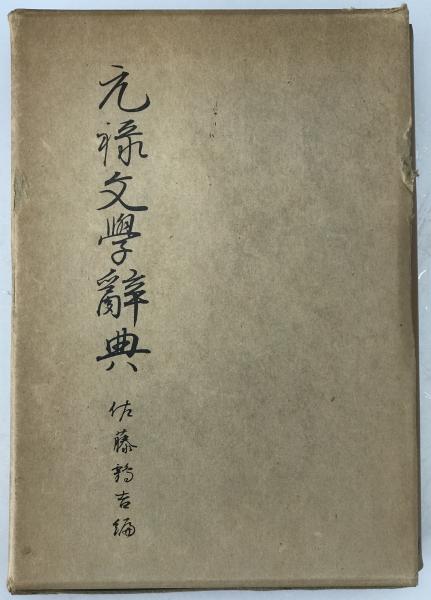 元祿文學辭典
佐藤鶴吉編